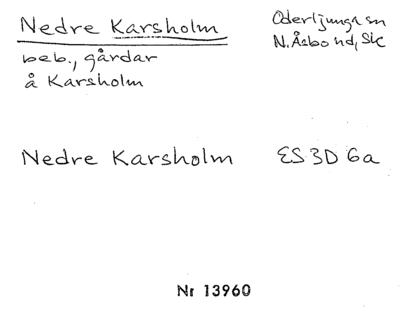 Nedre Karsholm
Oderljunga sn
N. Åsbo hd, Sk
beb., gårdar
å Karsholm
Nedre Karsholm ES 3D 6a
Nr 13960